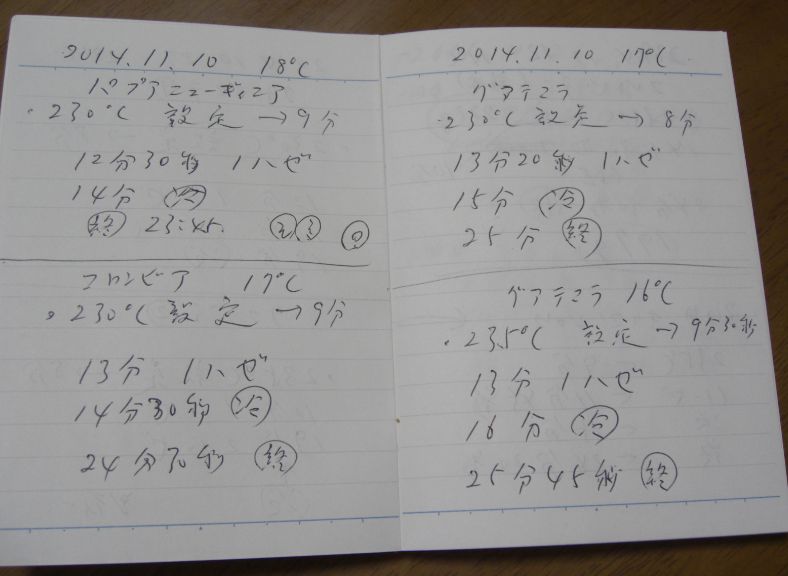 2014.11.10 18℃
パプアニューギニア
・230℃ 設定→9分
12分30秒 1ハゼ
14分 冷
終 23:45.
コロンビア 17℃
・230℃ 設定→9分
13分 1ハゼ
14分30秒 冷
24分30秒 終
2014.11.10 17℃
グアテマラ
・230℃ 設定→8分
13分20秒 1ハゼ
15分 冷
25分 終
グアテマラ 16℃
・235℃ 設定→9分30秒
13分 1ハゼ
16分 冷
25分45秒 終